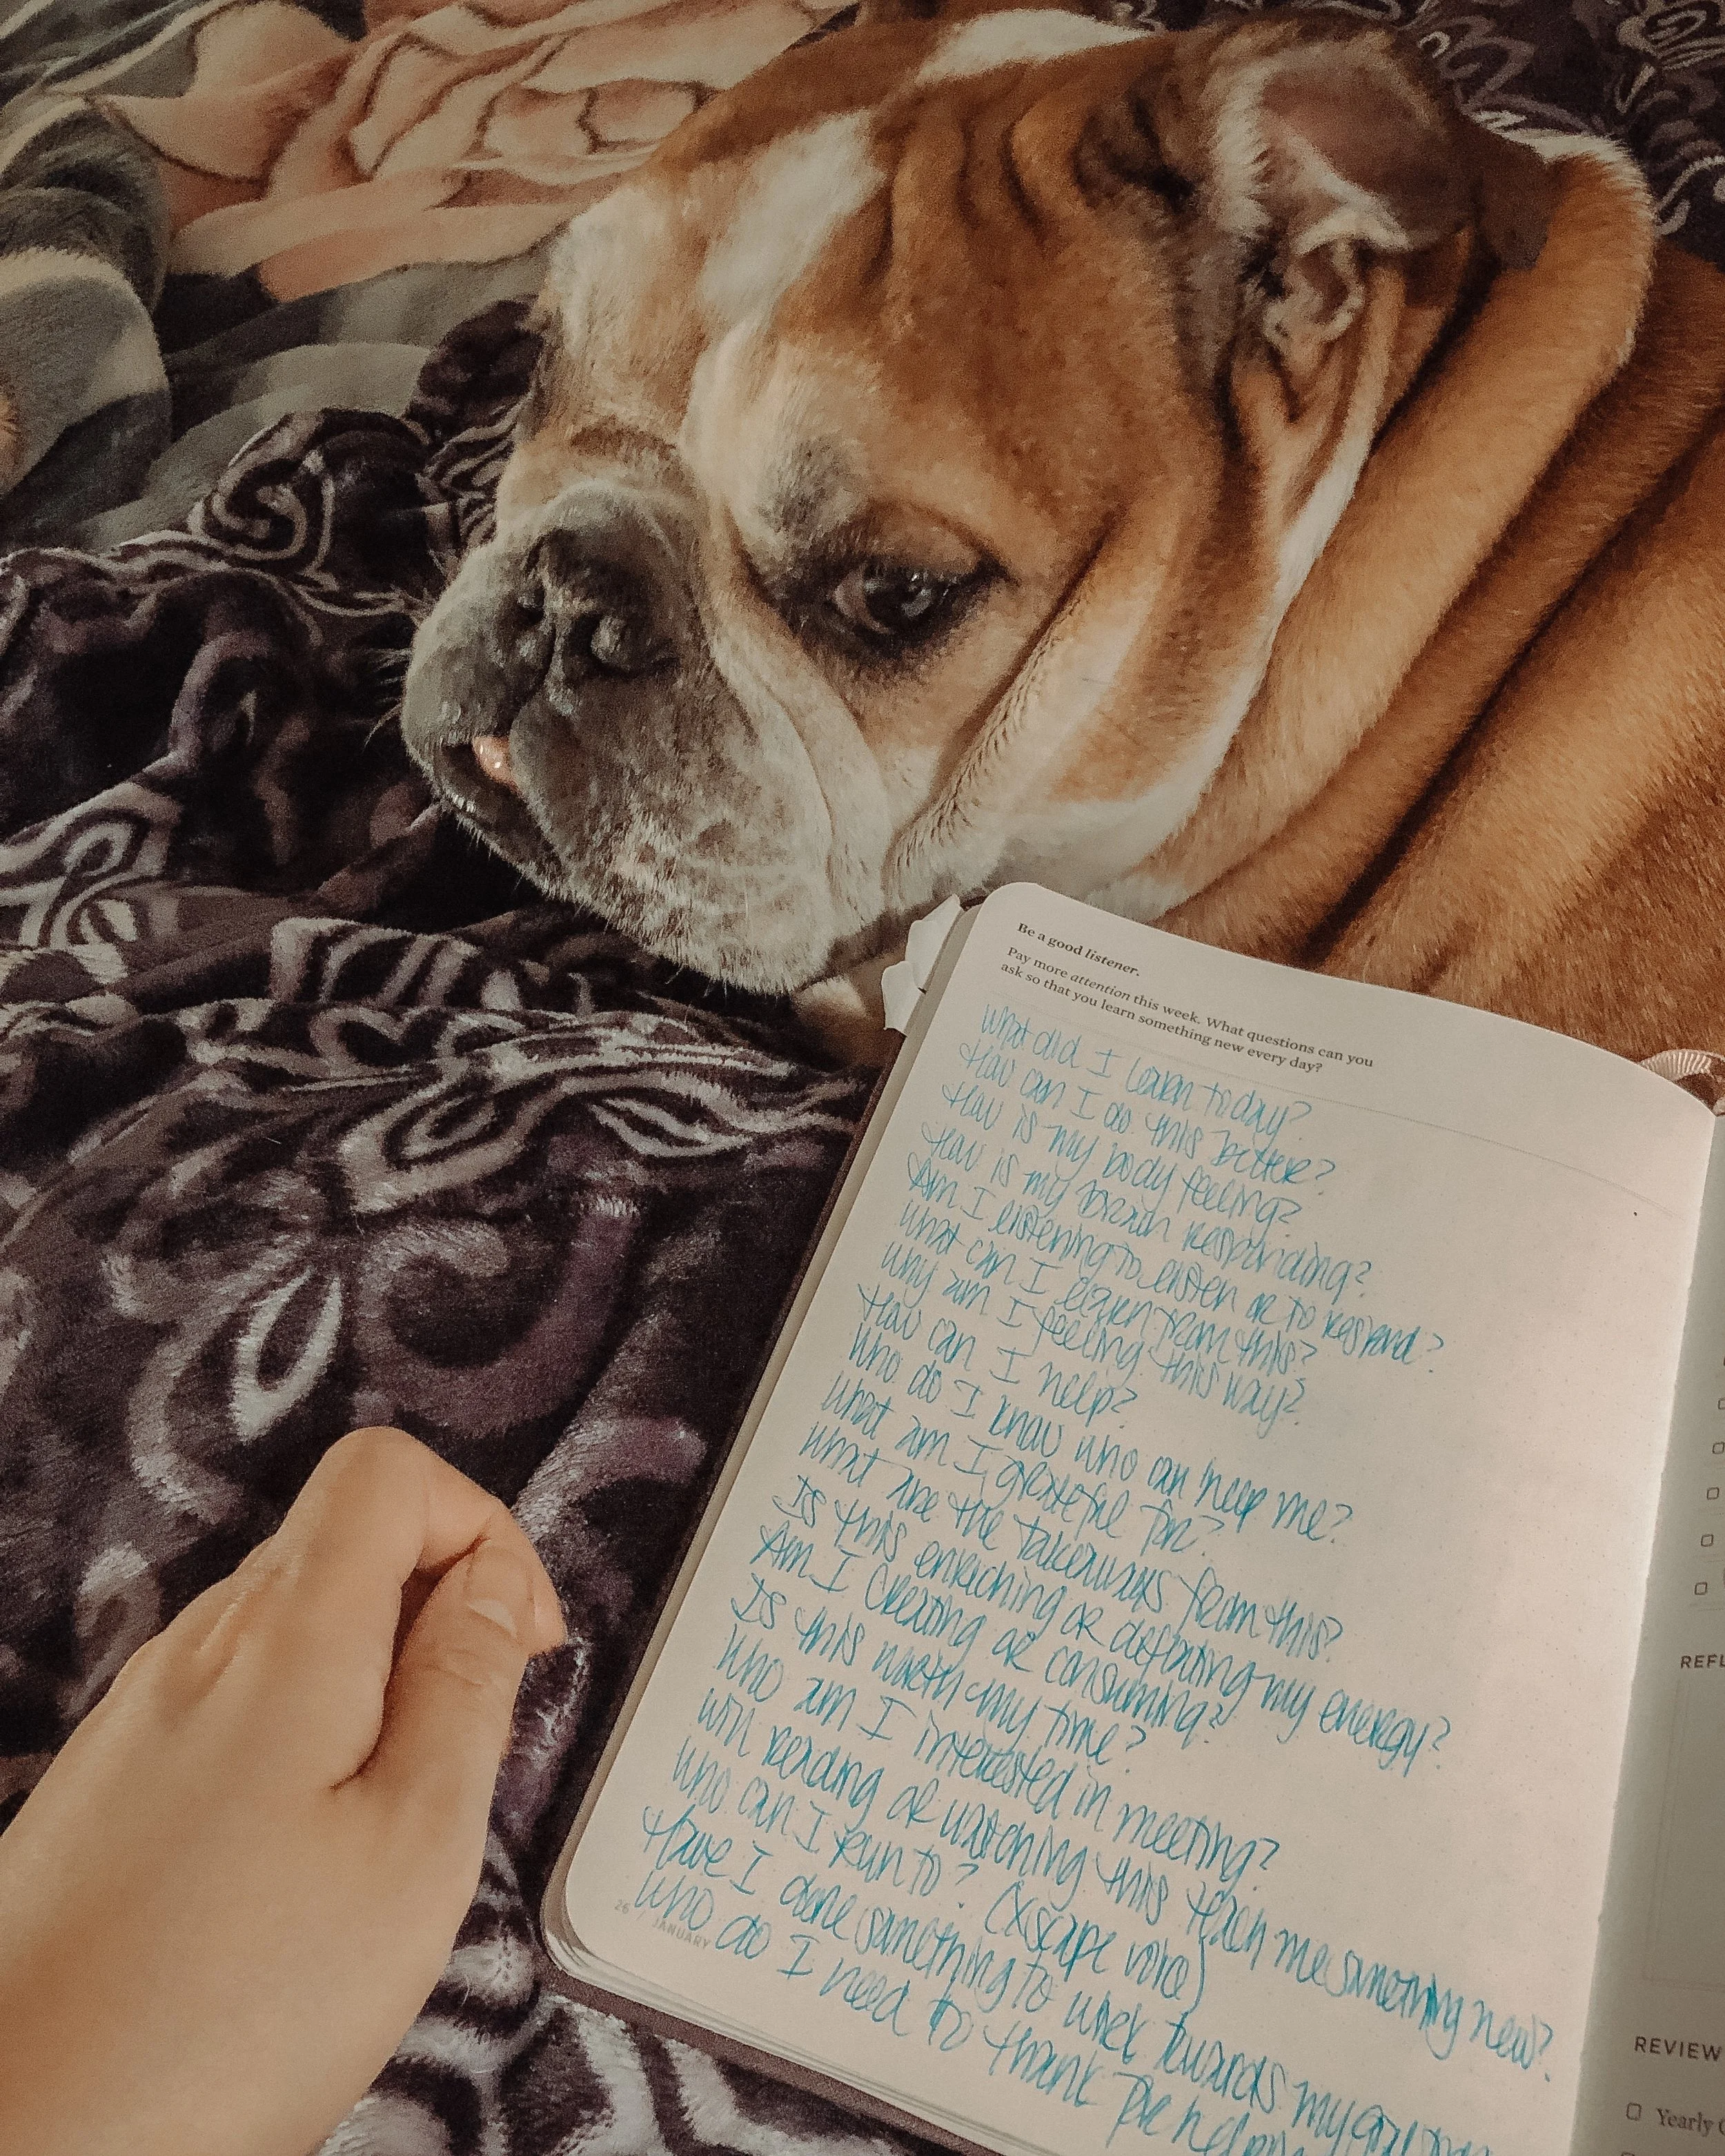 Be a good listener.
Pay more attention this week. What questions can you
ask so that you learn something new every day?
What did I learn today?
How can I do this better?
How is my body feeling?
How is my brain responding?
Am I listening to listen or to respond?
What can I learn from this?
Why am I feeling this way?
How can I help?
Who do I know who can help me?
What am I grateful for?
What are the takeaways from this?
Is this enriching or defeating my energy?
Am I creating or consuming?
Is this worth my time?
Who am I interested in meeting?
Will reading or watching this teach me something new?
Who can I run to?
Have I done something to work towards my
Who do I need to thank for
26 / JANUARY
REVIEW
Yearly